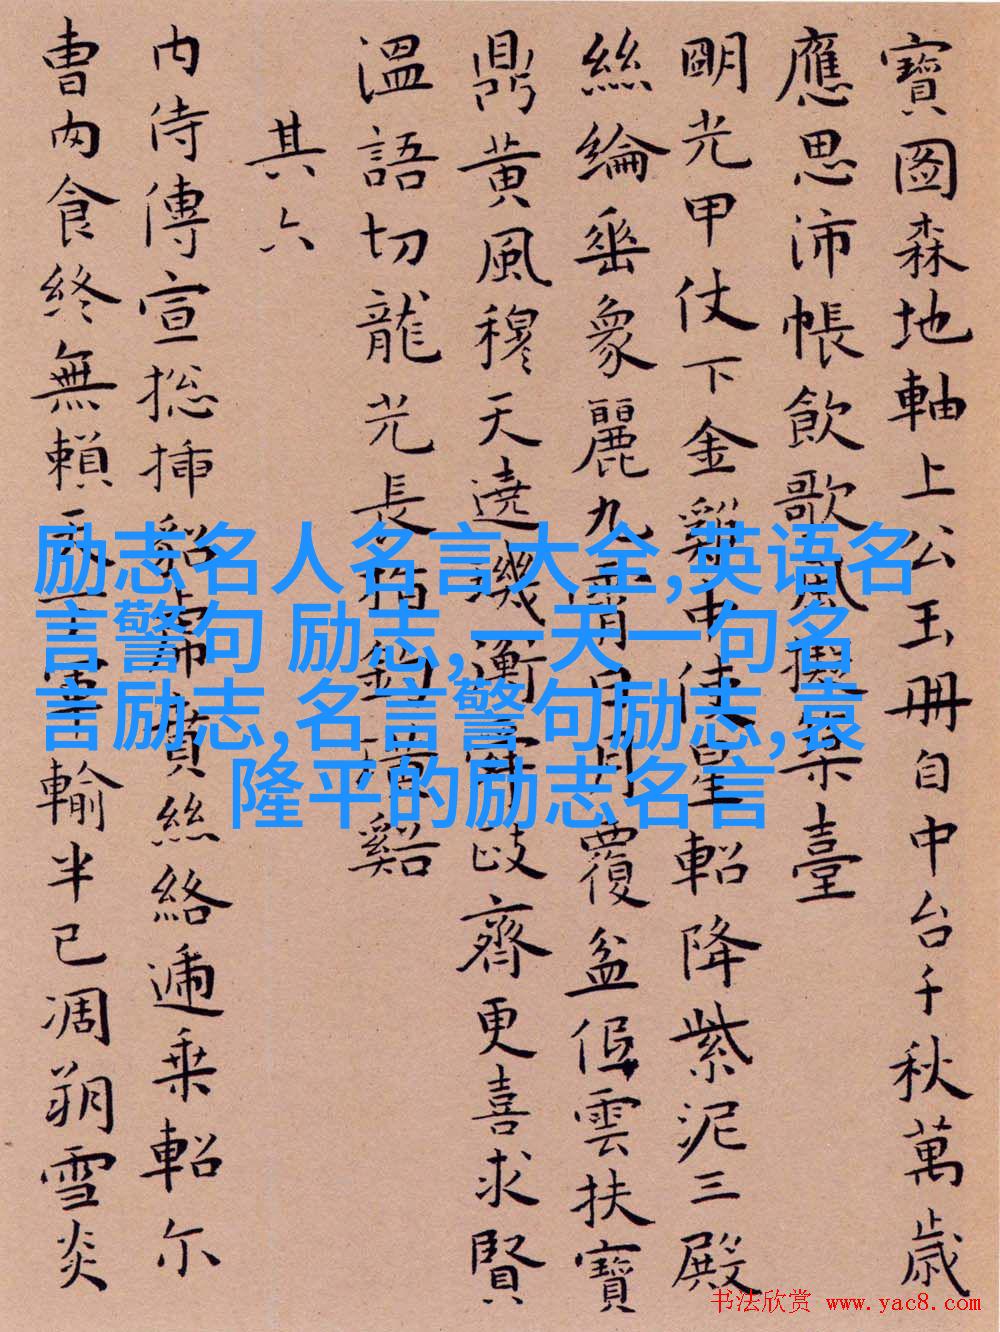 寶圖森地軸上公玉冊自中台千秋萬歲
應思沛帳飲歌風擬築臺
明光甲仗下金雞中使星軺降紫泥三殿
絲綸垂象麗九霄日月覆盆雲扶寶
鼎黃風穆天遶璣衡政齊更喜求賢
溫語切龍光長釣璜谿
其六
内侍傳宣捴揷貂絲絡遞乘軺尔
曹内食終無賴輸半已凋朔雪炎
励志名人名言大全,英语名
言警句 励志,一天一句名
言励志,名言警句励志,袁
隆平的励志名言
书法欣赏 www.yac8.com